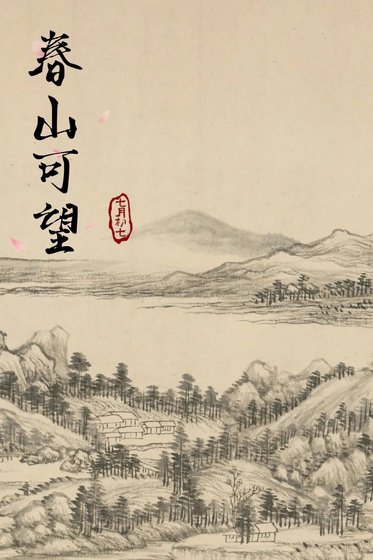 春山可望
七月初七